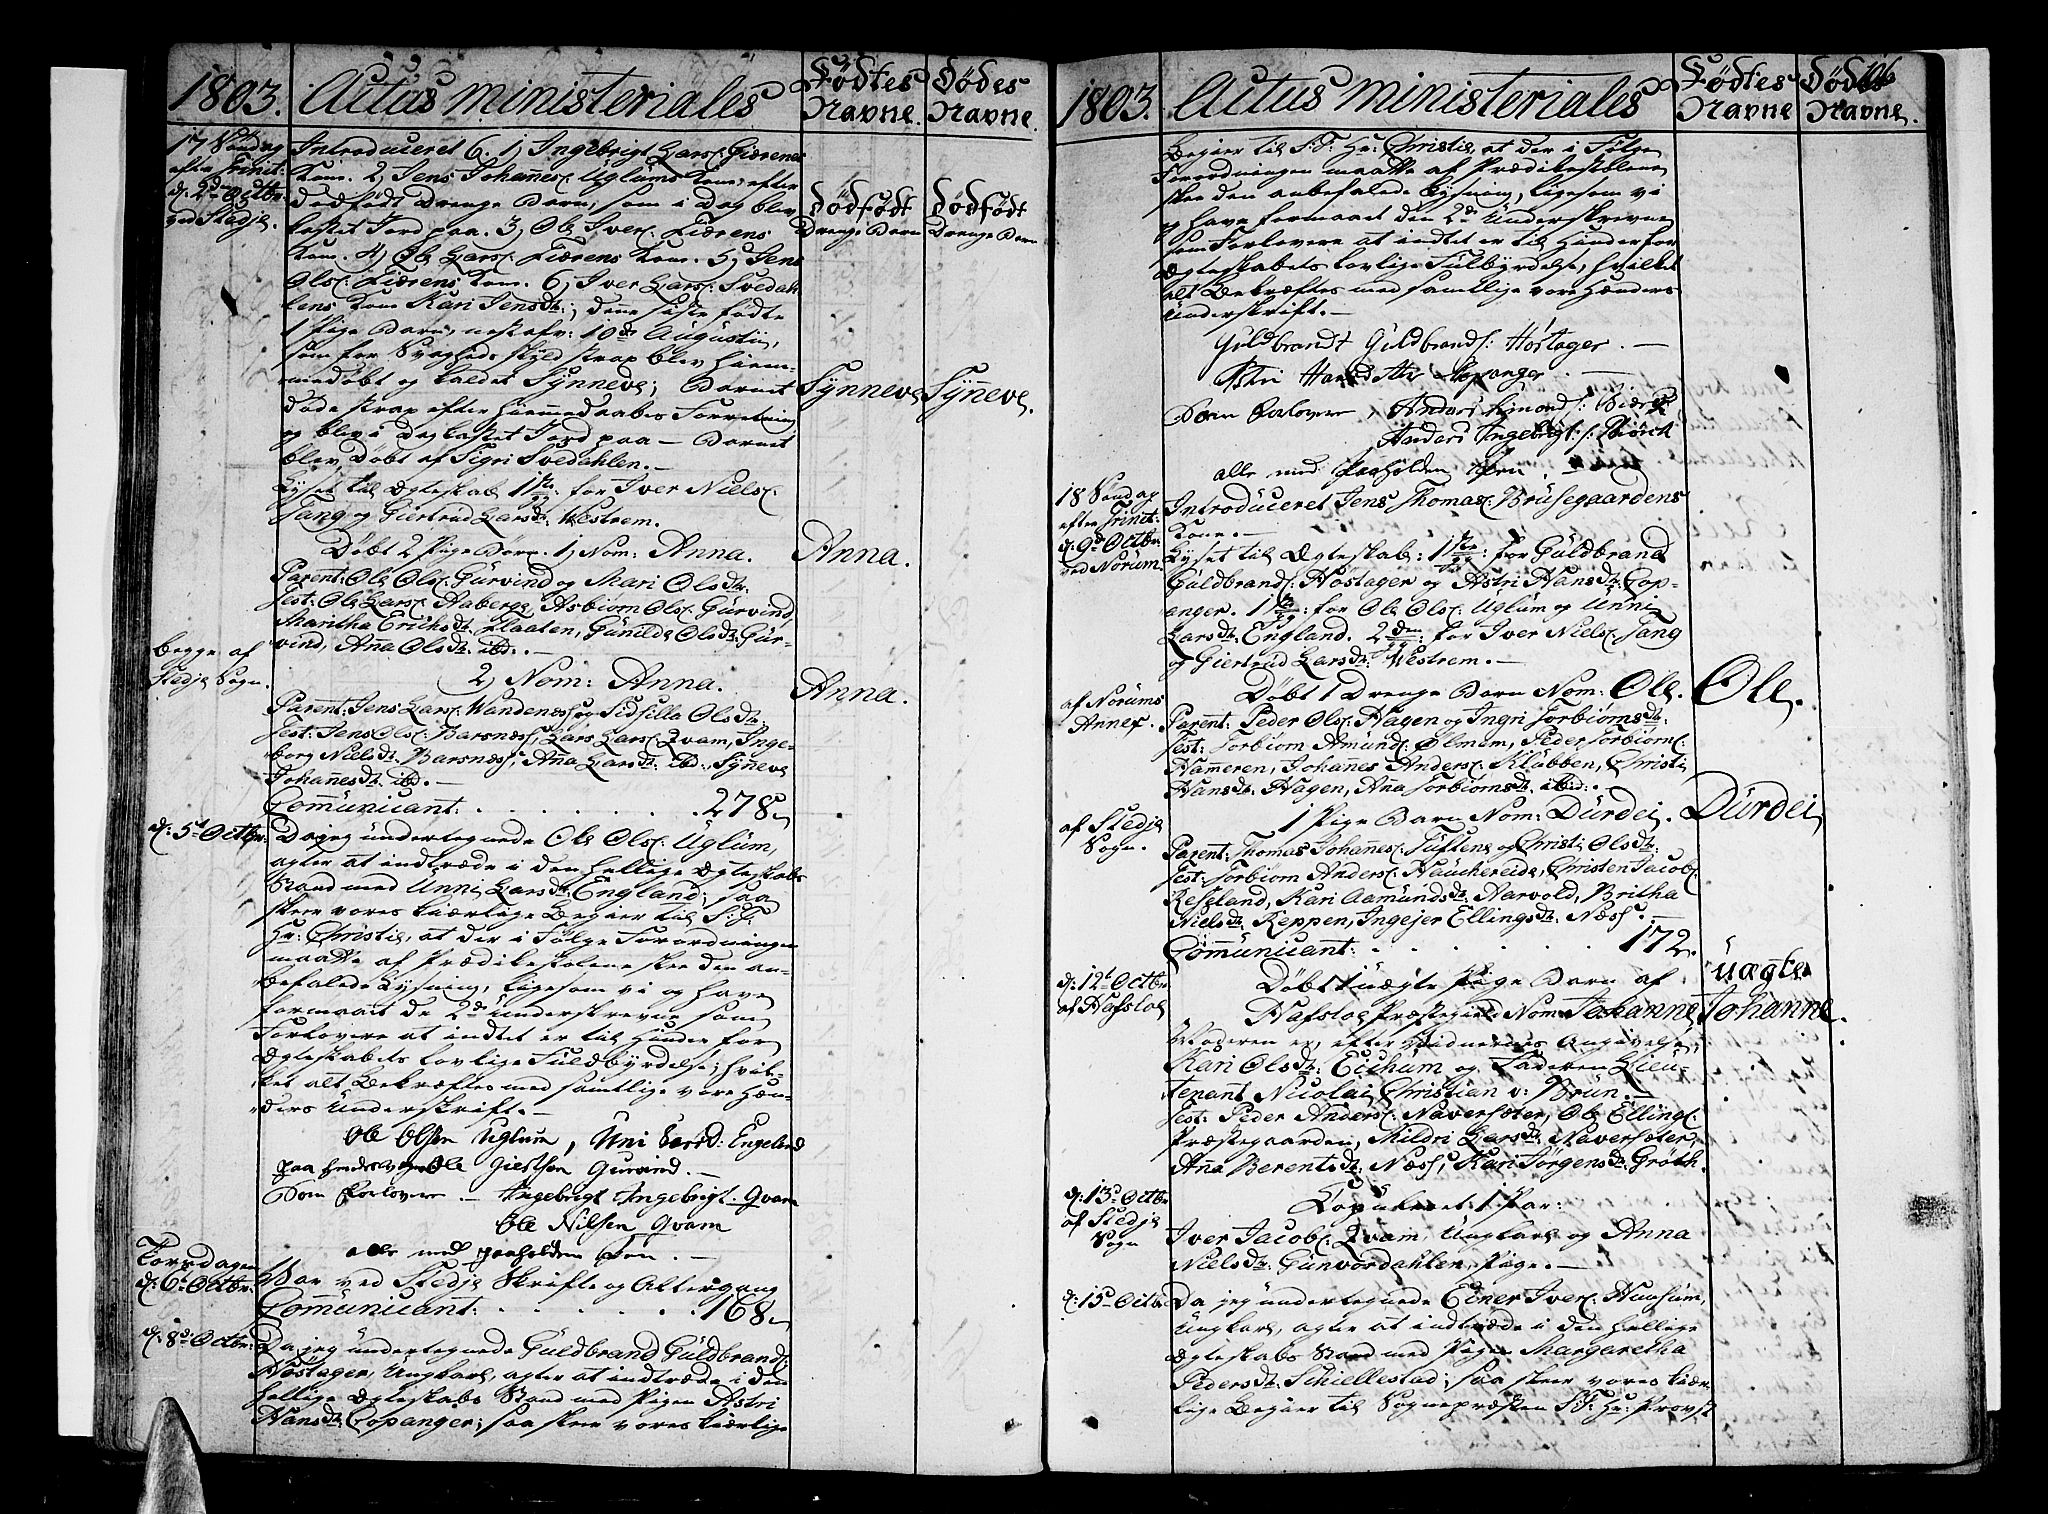 1803. Actus ministeriales Fødtes Navne. Dødes Navne.
17 Søndag efter Trinit: d. 2den Octbr. ved Stedje.
Introduceret 6. 1) Ingebrigt Lars: Fiærenes
Kone. 2 Jens Johannes: Uglums Kone efter
dødfødt Drenge Barn, som i Dag blev
kastet Jord paa. 3) Ole Ivers: Fiærens
Kone. 4) Ole Lars: Fiærens Kone. 5) Jens
Ols: Fiærens Kone. 6) Iver Lars: Svedah-
lens Kone Kari Jensdtr:; denne sidste fødte
1 Pige Barn, nestafv: 10de Augustii,
som for Svagheds skyld strax blev hiem-
medøbt og kaldet Synneve; Barnet
døde strax efter Hiemmedaabes Forretning
og blev i Dag kastet Jord paa – Barnet
blev døbt af Sigri Svedahlen. –
Dødfødt Drenge Barn
Dødfødt Drenge Barn
Synneve
Synneve.
Lyset til Ægteskab 1ste g: for Iver Niels:
Tang og Giertrud Larsdtr: Westrem.
Døbt 2 Pige Børn. 1) Nom: Anna.
Anna.
Parent: Ole Ols: Gurvind og Mari Olsdtr:
Test: Ole Lars: Aaberge, Asbiorn Ols: Gurvind,
Maritha Ericksdtr. Flaaten, Gunilde Olsdtr: Gur-
vind, Anna Olsdtr. ibd. –
begge af Stedje Sogn.
2) Nom: Anna.
Anna.
Parent: Jens Lars: Wandenes og Sidsilla Olsdtr:
Test: Jens Ols: Barsnæs, Lars Lars: Qvam, Inge-
borg Nielsdtr. Barsnæs, Anna Larsdtr: ibd:, Synneve
Johannesdtr. ibd. –
Communicant: . . . . . . 278.
d: 5t Octbr:
Da jeg undertegnede Ole Ols: Uglum,
agter at indtræde i den hellige Ægteskabs
Stand med Unni Larsdtr: Engeland; saa
skeer vores kiærlige Begiær til S: T:
Hr: Christie, at der i Følge Forordningen
maatte af Prædikestolene skee den an-
befalede Lysning, ligesom vi og have
formaaet de 2de Underskrevne som
Forlovere at indtet er til Hinder for
Ægteskabets lovlige Fuldbyrdelse; hvil-
ket alt Bekræftes med samtlige vore Hæn-
ders Underskrift. –
Ole Olsen Uglum, Uni Larsd: Engeland
paa hendes vegne Ole Giertsen Gurvind. –
Som Forlovere – Ingebrigt Ingebrigt. Qvam
Ole Nilsen Qvam
alle med paaholden Pen. –
Torsdagen d: 6t Octbr:
War ved Stedje Skrifte og Altergang
Communicant: . . . . . . 168.
d: 8de Octbr:
Da jeg undertegnede Guldbrand Guldbrands:
Høstager, Ungkarl, agter at indtræde i den
hellige Ægteskabs Stand med Pigen Astri
Hansdtr. Copanger; saa skeer vores kiærlige
1803. Actus ministeriales Fødtes Navne Dødes Navne. 106
Begiær til S: T: Hr: Christie, at der i Følge
Forordningen maatte af Prædikestolene
skee den anbefalede Lysning, ligesom vi
og have formaaet den 2de Underskrevne
som Forlovere at indtet er til Hinder for
Ægteskabets lovlige Fuldbyrdelse, hvilket
alt Bekræftes med samtlige vore Hænders
Underskrift. –
Guldbrandt Guldbrands: Høstager. –
Astri Hansdatter Copanger. –
Som Forlovere, Anders Amonds:
Anders Ingebrigt:
alle med paaholden Pen. –
18 Søndag efter Trinit: d: 9de Octbr: ved Norum.
Introduceret Jens Thomas: Brusegaardens
Kone. –
Lyset til Ægteskab: 1ste g: for Guldbrand
Guldbrands: Høstager og Astri Hansdtr: Cop-
anger. 1ste g: for Ole Ols: Uglum og Unni
Larsdtr: England. 2den g: for Iver Niels: Tang
og Giertrud Larsdtr: Westrem. –
af Norums Annex.
Døbt 1 Drenge Barn Nom: Ole.
Ole.
Parent: Peder Ols: Hagen og Ingri Torbiørnsdtr:
Test: Torbiorn Amund: Olmem, Peder Torbiorn:
Hammeren, Johannes Anders: Klubben, Christi
Hansdtr. Hagen, Anna Torbiørnsdtr. ibid: –
af Stedje Sogn.
1 Pige Barn Nom: Durdei.
Durdei
Parent: Thomas Johanes: Tuftene og Christi Olsdtr:
Test: Torbiorn Anders: Hauchereide, Christen Jacob:
Kesseland, Kari Aamundsdtr. Aarvold, Britha
Nielsdtr. Reppen, Ingejer Ellingsdtr. Næss. –
Communicant: . . . . . . 172.
d: 12t Octbr: af Hafsloe
Døbt 1 uægte Pige Barn af
Hafsloe Præstegield Nom: Johanne,
uægte Johanne.
Moderen er, efter Vidnernes Angivelse,
Kari Olsdtr: Eichum og Faderen Lieu-
tenant Nicolai Christian v: Brun. –
Test: Peder Anders: Naversæter, Ole Elling:
Præstegaarden, Mildri Larsdtr. Naversæter,
Anna Berentsdtr. Næss, Kari Jørgensdtr. Grøth.
d: 13de Octbr af Stedje Sogn
Copuleret 1 Par:
Iver Jacob: Qvam, Ungkarl og Anna
Nielsdtr: Gunvordahlen, Pige. –
d: 15de Octbr:
Da jeg undertegnede Einer Iver: Huusum,
Ungkarl, agter at indtræde i den hellige
Ægteskabs Stand med Pigen Margaretha
Pedersdtr. Schiellestad; saa skeer vores kiær-
lige Begiær til Sognepræsten S: T: Hr: Provst